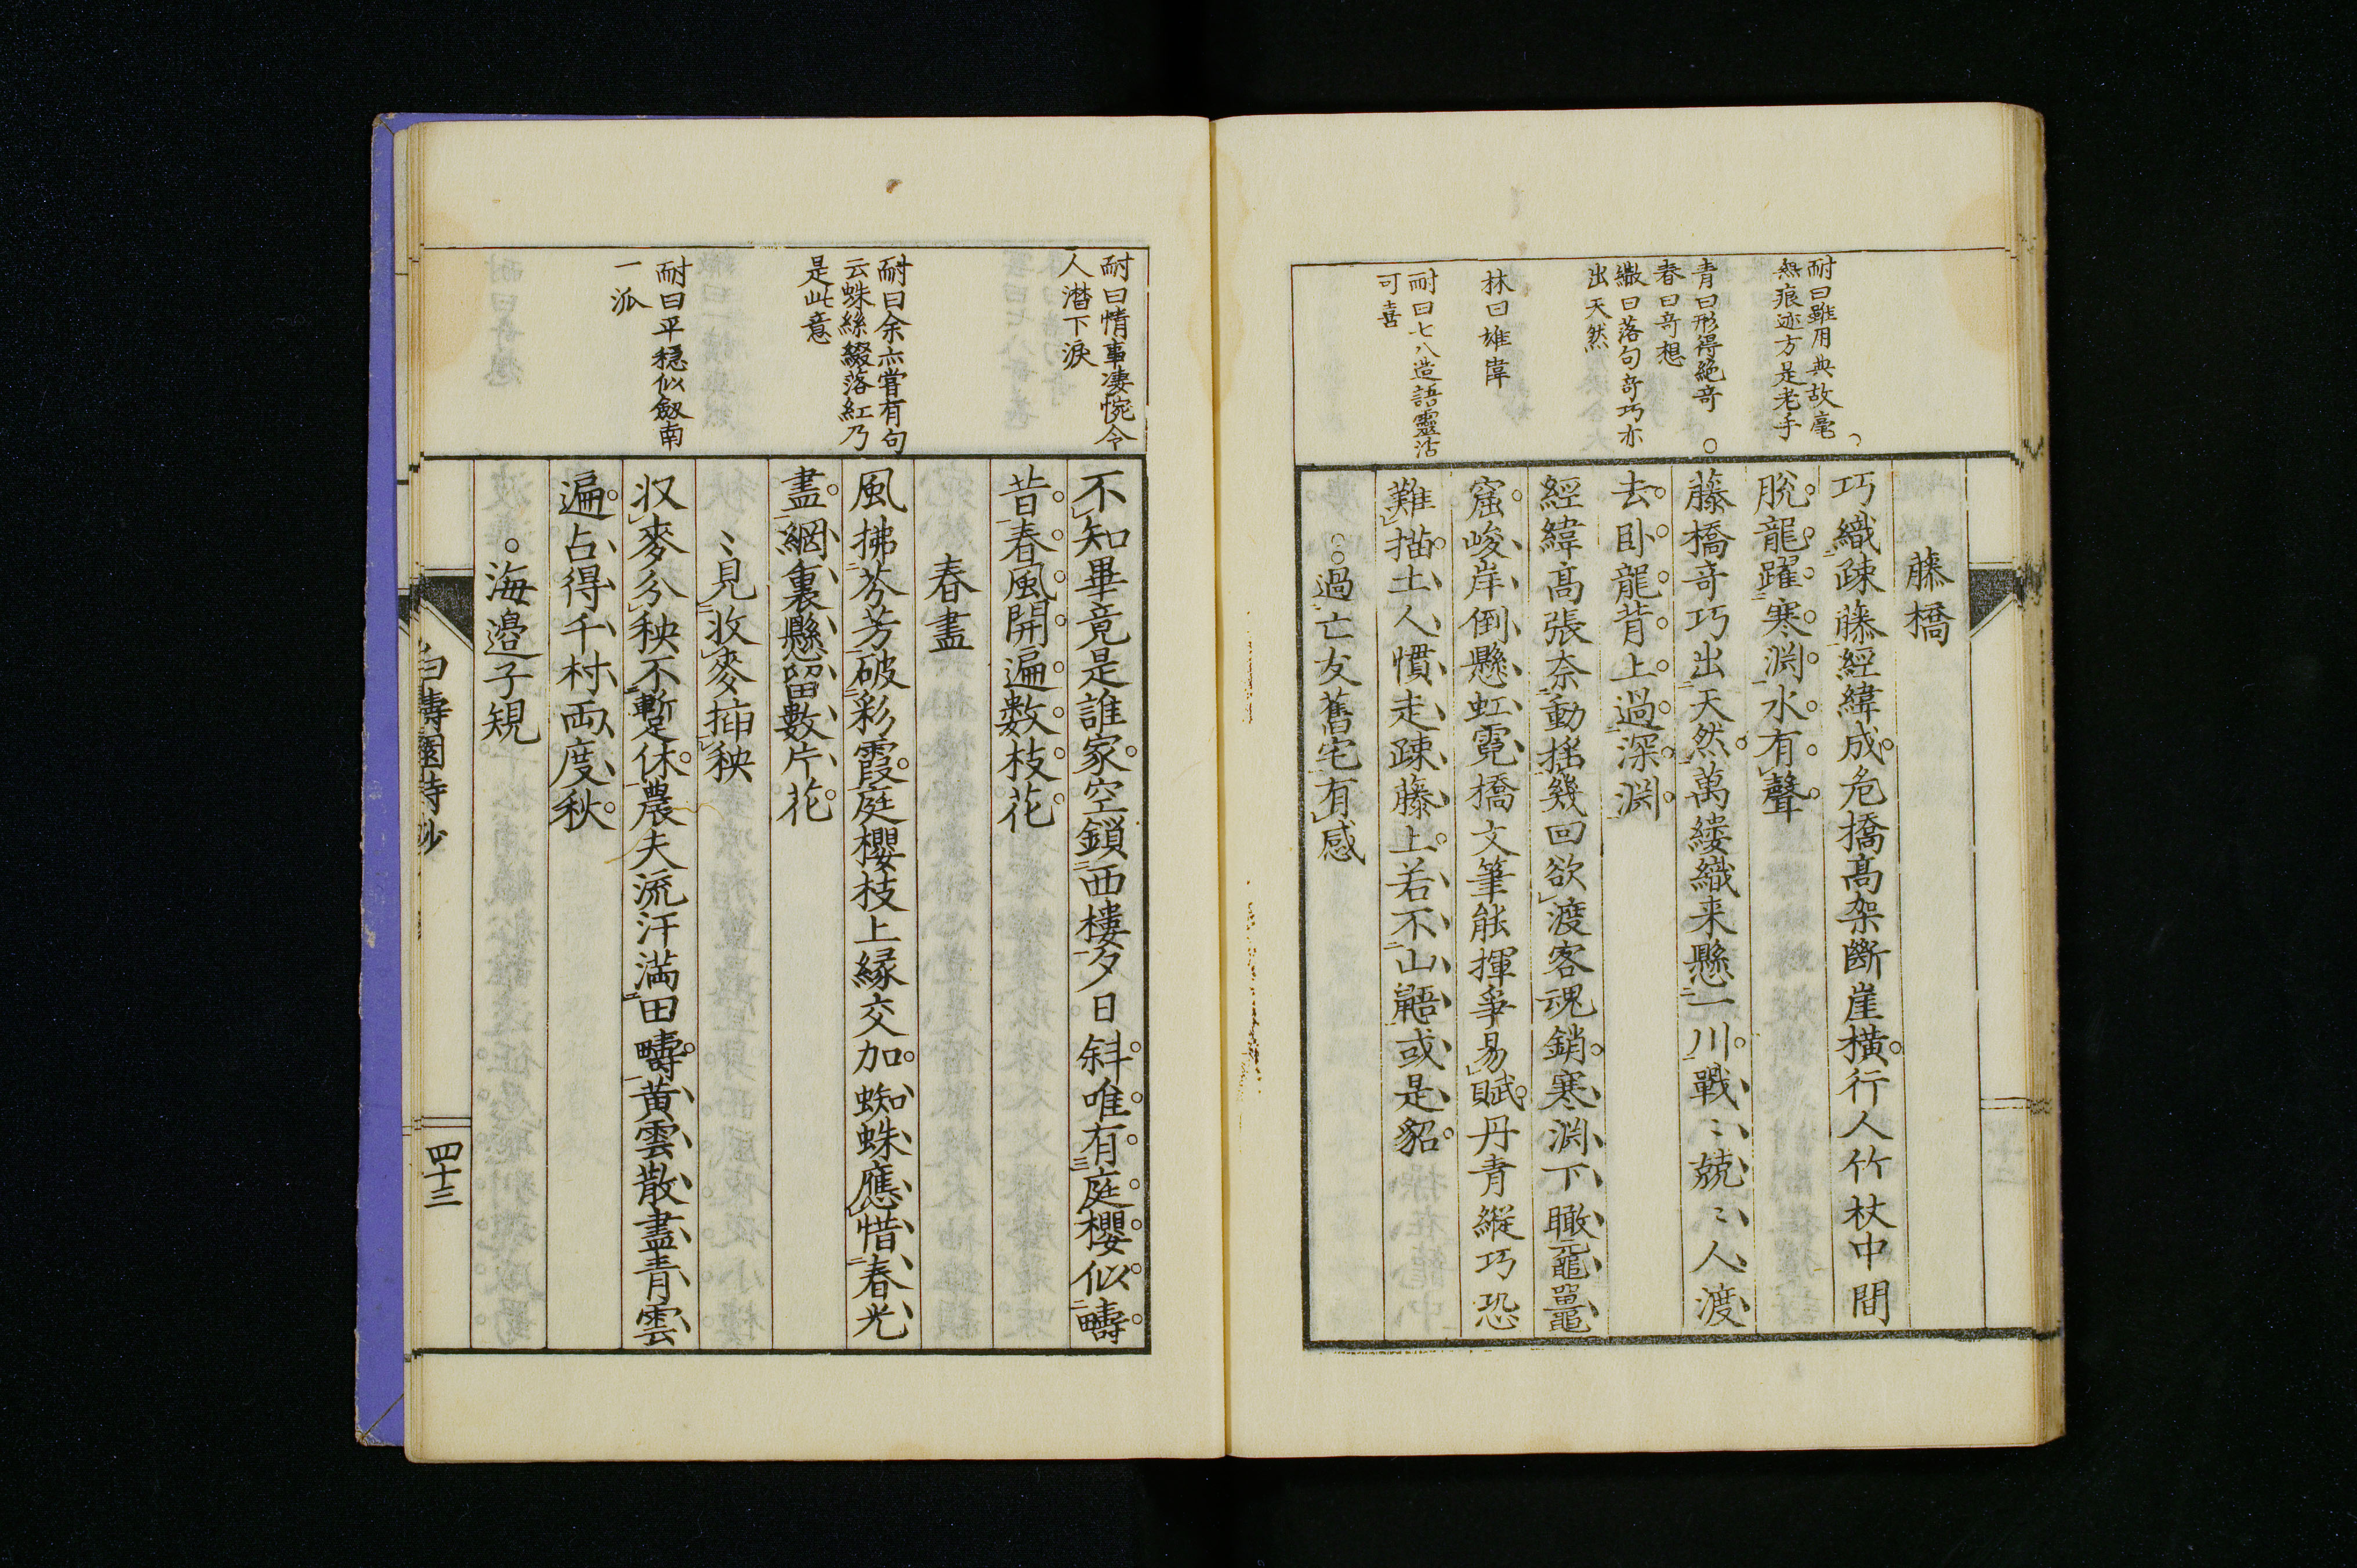 耐曰雖用典故毫
無痕迹方是老手
青曰形得絶奇
春曰奇想
繖曰落句奇巧亦
出天然
林曰雄偉
耐曰七八造語靈活
可喜
藤橋
巧織疎藤經緯成危橋高架斷崖橫行人竹杖中間
脫龍躍寒渕水有聲
藤橋奇巧出天然萬縷織来懸一川戰〻兢〻人渡
去臥龍背上過深渕
經緯高張奈動揺幾回欲渡客魂銷寒渕下瞰黿鼉
窟峻岸倒懸虹霓橋文筆能揮爭易賦丹青縱巧恐
難描土人慣走疎藤上若不山鼯或是貂
過亡友舊宅有感
耐曰情事凄惋令
人潸下淚
耐曰余亦嘗有句
云蛛絲綴落紅乃
是此意
耐曰平穏似劔南
一派
不知畢竟是誰家空鎖西樓夕日斜唯有庭櫻似疇
昔春風開遍数枝花
春盡
風拂芬芳破彩霞庭櫻枝上縁交加蜘蛛應惜春光
盡網裏懸留數片花
〻見收麥揷秧
収麥分秧不暫休農夫流汗満田疇黄雲散盡青雲
遍占得千村両度秋
海邉子規
白壽園詩鈔
四十三